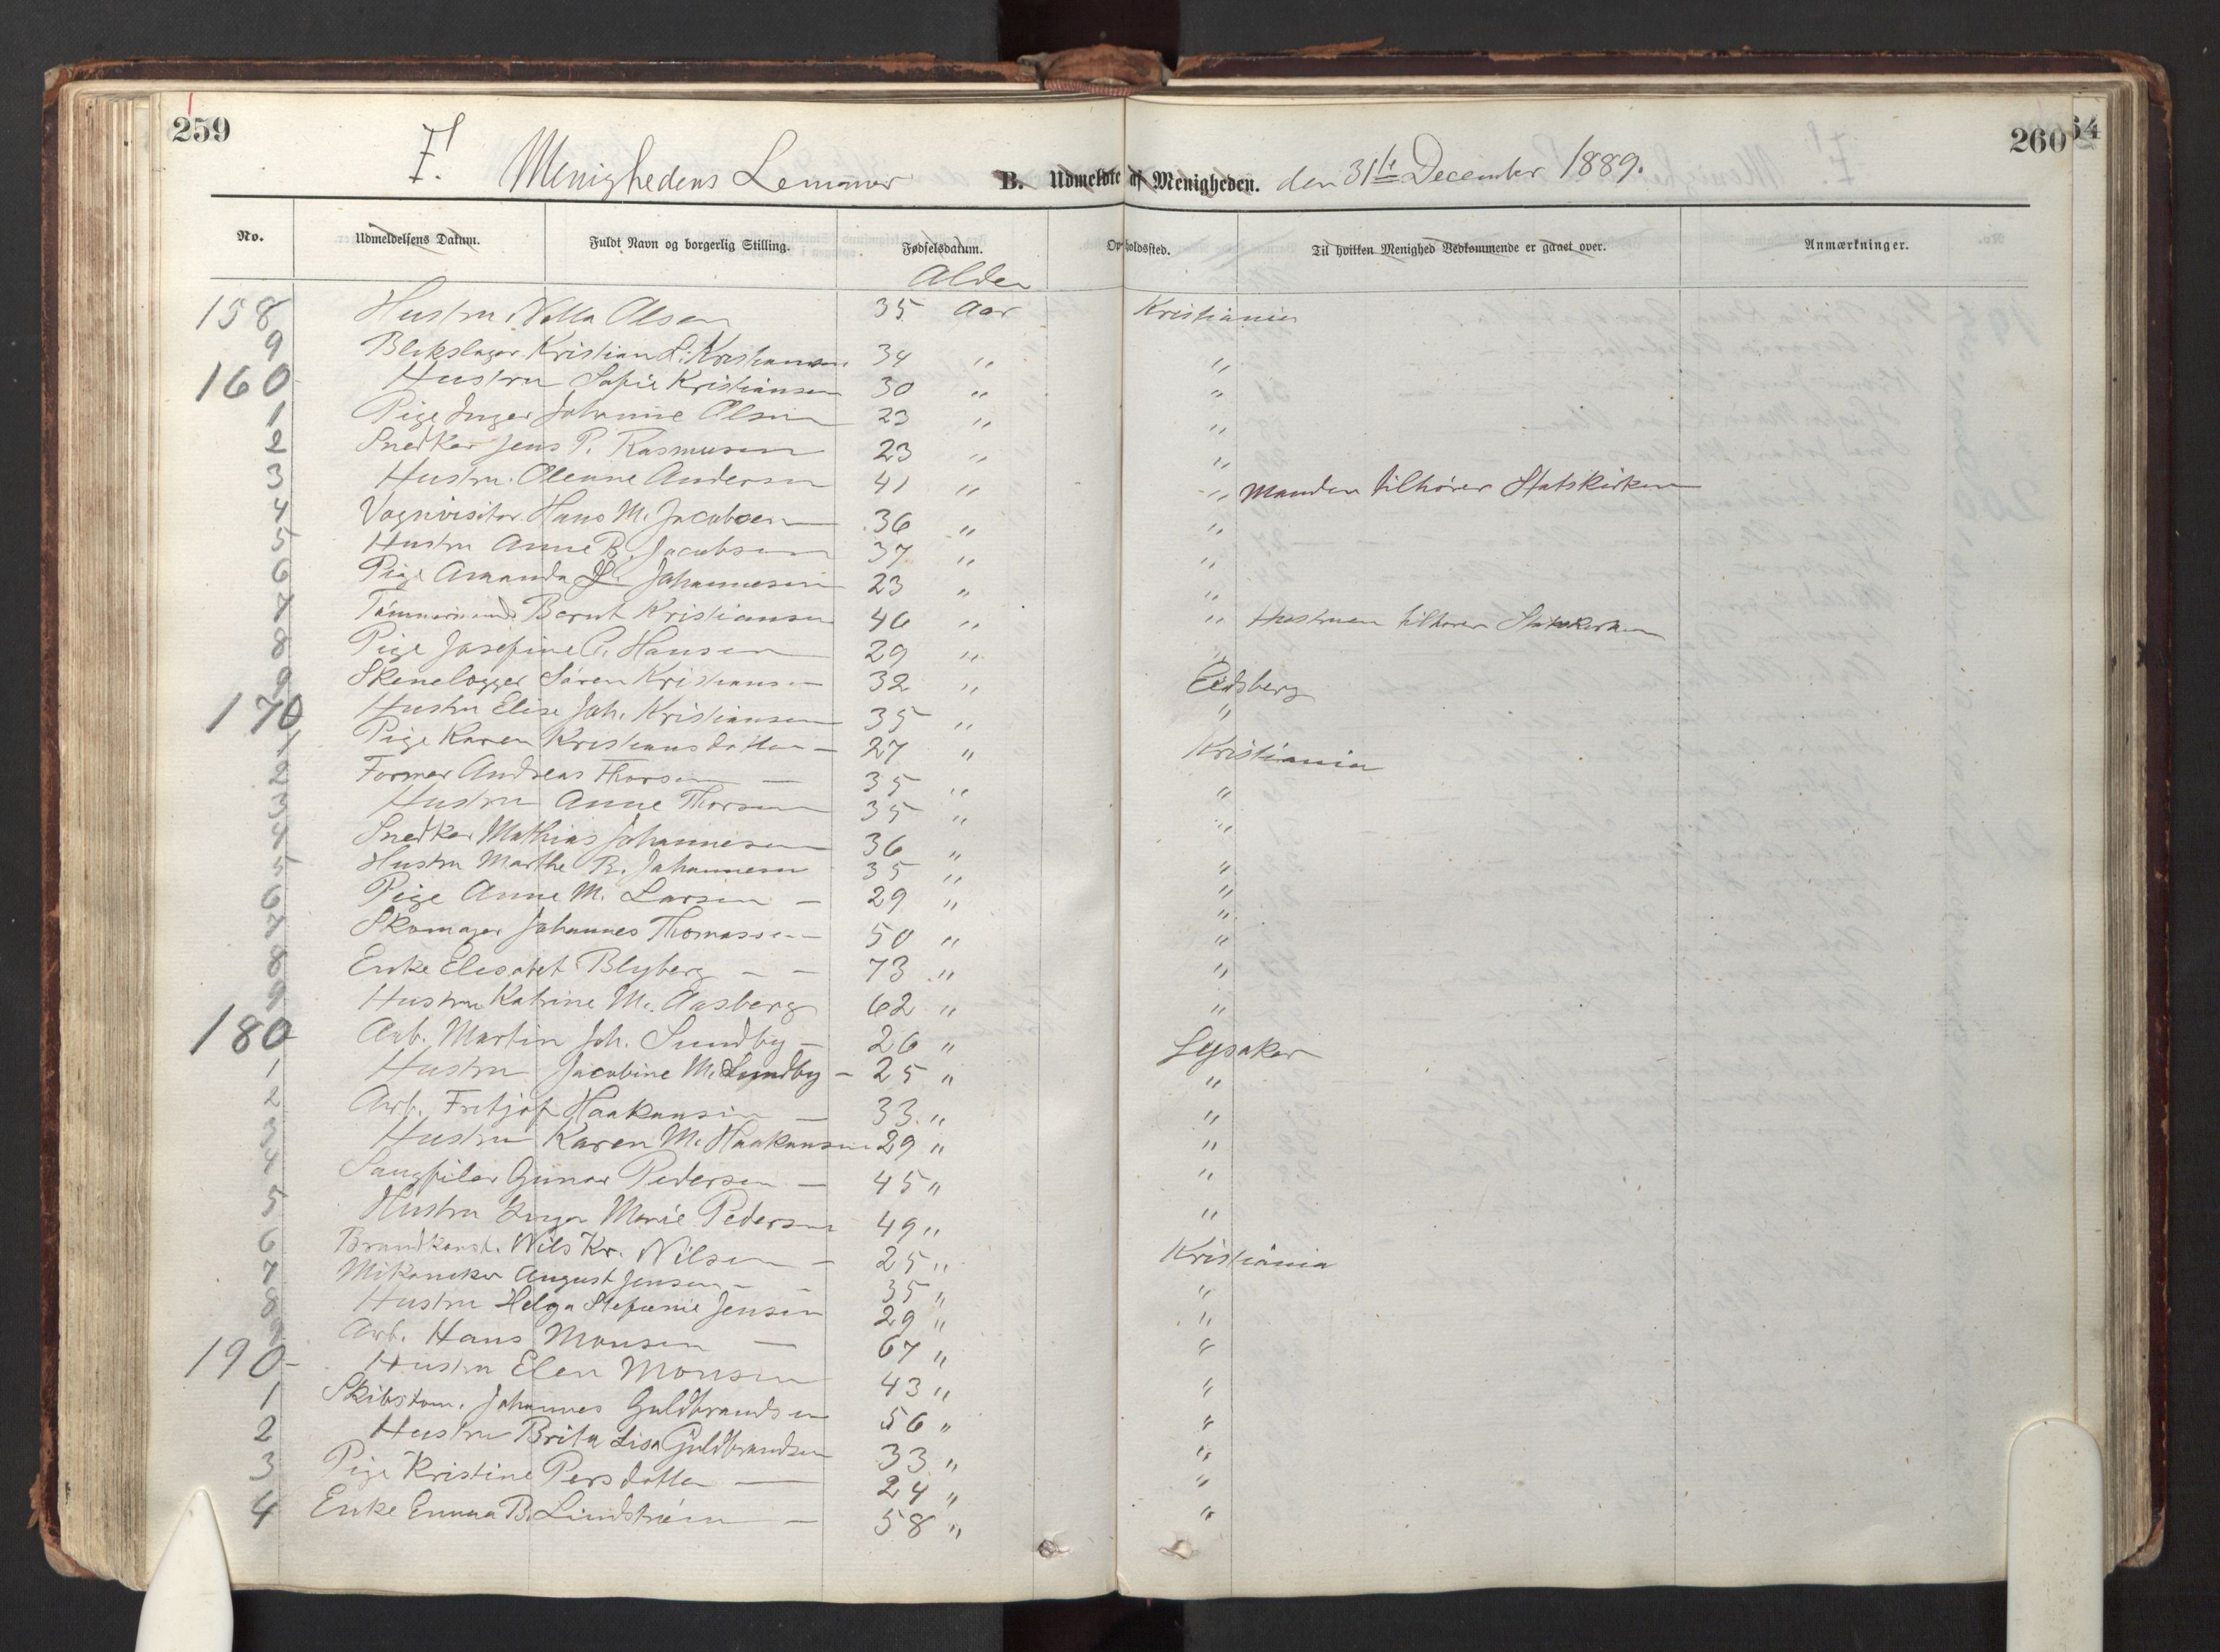 259 260 64
F. Menighedens Lemmer B. Udmeldte af Menigheden. den 31te December 1889.
No. Udmeldelsens Datum. Fuldt Navn og borgerlig Stilling. Fødselsdatum. Opholdssted. Til hvilken Menighed Vedkommende er gaaet over. Anmærkninger.
Alder
158 Hustru Olsen 35 Aar Kristiania
9 Blikslager Kristian Kristiansen 34 " "
160 Hustru Sofie Kristiansen 30 " "
1 Pige Inger Johanne Olsen 23 " "
2 Snedker Jens P. Rasmusen 23 " "
3 Hustru Oleane Andersen 41 " " Manden tilhører Statskirken
4 Vognvisitør Hans M. Jacobsen 36 " "
5 Hustru Anne B. Jacobsen 37 " "
6 Pige Amanda Johannesen 23 " "
7 Tømmermand Bernt Kristiansen 46 " " Hustruen tilhører Statskirken
8 Pige Josefine C. Hansen 29 " "
9 Skenelægger Søren Kristiansen 32 " Eidsberg
170 Hustru Elise Joh. Kristiansen 35 " "
1 Pige Karen Kristiansdatter 27 " Kristiania
2 Former Andreas Thorsen 35 " "
3 Hustru Anne Thorsen 35 " "
4 Snedker Mathias Johannesen 36 " "
5 Hustru Marthe B. Johannesen 35 " "
6 Pige Anne M. Larsen 29 " "
7 Skomager Johannes Thomassen 50 " "
8 Enke Elisabet Blyberg 73 " "
9 Hustru Katrine M. Aasberg 62 " "
180 Arb. Martin Joh. Sundby 26 " Lysaker
1 Hustru Jacobine M. Sundby 25 " "
2 Arb. Fritjof Haakansen 33 " "
3 Hustru Karen M. Haakansen 29 " "
4 Gunar Pedersen 45 " "
5 Hustru Inga Marie Pedersen 49 " "
6 Brandkonst. Nils Kr. Nilsen 25 " Kristiania
7 Mikaniker August Jensen 35 " "
8 Hustru Helga Stefanie Jensen 29 " "
9 Arb. Hans Monsen 67 " "
190 Hustru Elen Monsen 43 " "
1 Skibstøm. Johannes Guldbrandsen 56 " "
2 Hustru Brita Lisa Guldbrandsen 33 " "
3 Pige Kristine Persdatter 24 " "
4 Enke Emma B. Lindstrøm 58 " "